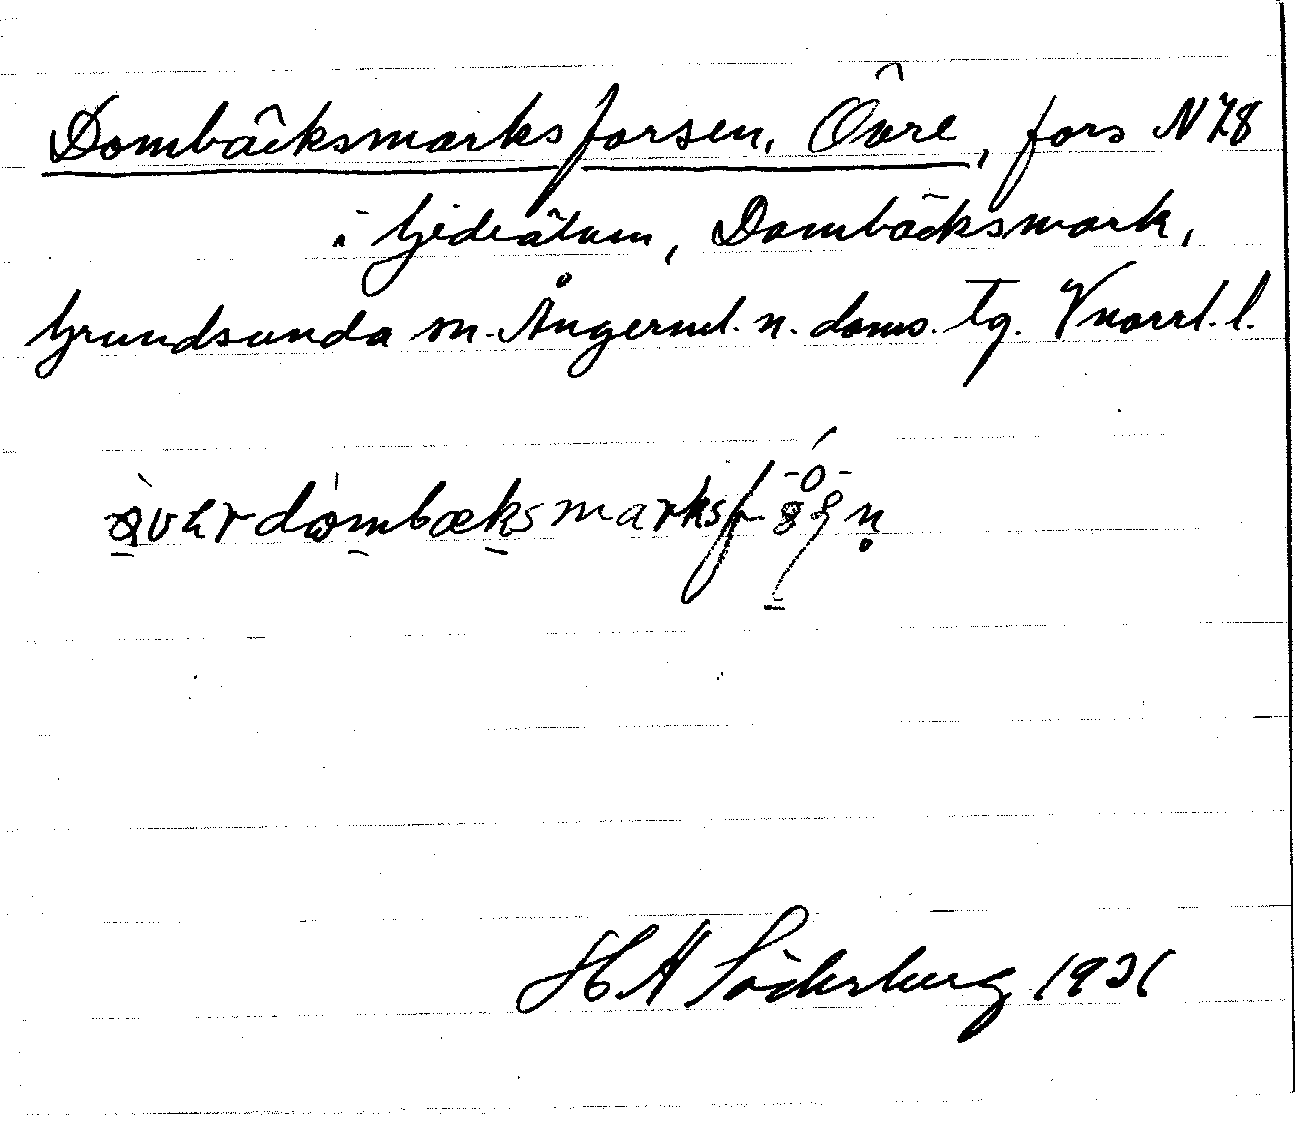 Dombäcksmarksforsen, Övre, fors N 78
i Gideälven, Dombäcksmark,
Grundsunda sn. Ångerml. n. doms. tg. Vnorrl. l.
H A Söderberg 1931